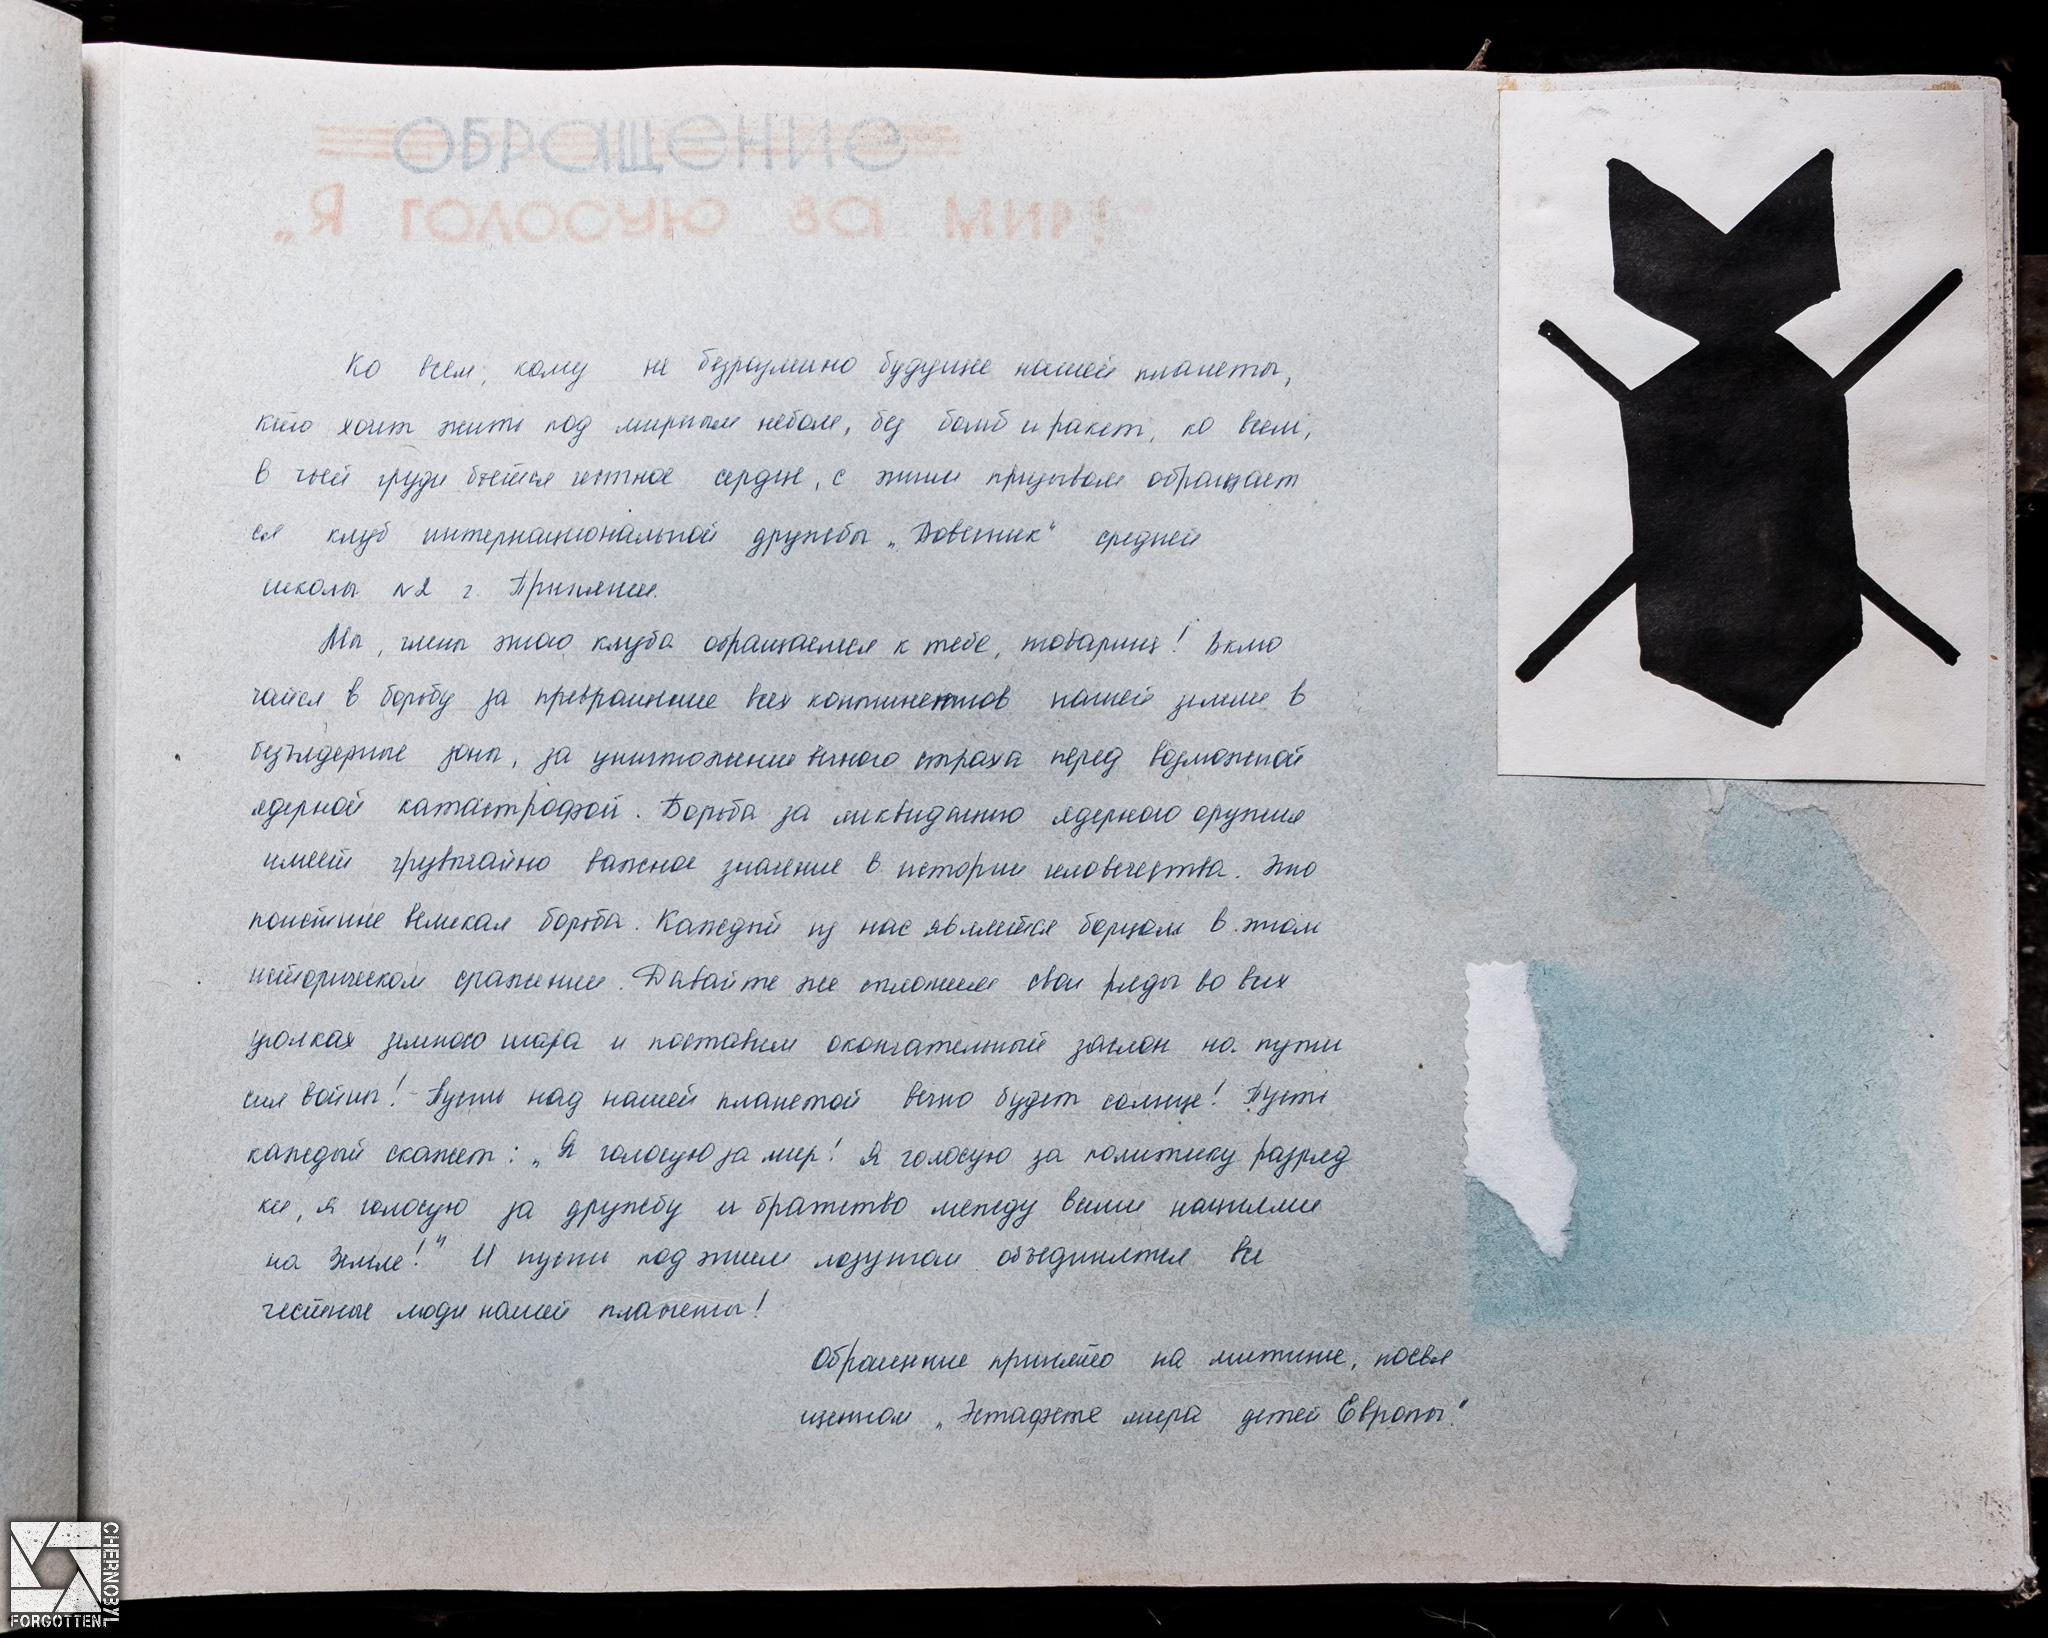 ОБРАЩЕНИЕ
„Я ГОЛОСУЮ ЗА МИР!"
Ко всем, кому не безразлично будущее нашей планеты,
кто хочет жить под мирным небом, без бомб и ракет, ко всем,
в чьей груди бьётся честное сердце, с этим призывом обращает
ся клуб интернациональной дружбы „Ровесник" средней
школы №2 г. Припяти.
Мы, члены этого клуба обращаемся к тебе, товарищ! Вклю
чайся в борьбу за превращение всех континентов нашей земли в
безъядерные зоны, за уничтожение вечного страха перед возможной
ядерной катастрофой. Борьба за ликвидацию ядерного оружия
имеет чрезвычайно важное значение в истории человечества. Это
поистине великая борьба. Каждый из нас является борцом в этом
историческом сражении. Давайте же сплотим свои ряды во всех
уголках земного шара и поставим окончательный заслон на пути
сил войны! Пусть над нашей планетой вечно будет солнце! Пусть
каждый скажет: „Я голосую за мир! Я голосую за политику разряд
ки, я голосую за дружбу и братство между всеми нациями
на Земле!" И пусть под этим лозунгом объединятся все
честные люди нашей планеты!
Обращение принято на митинге, посвя
щенном „Эстафете мира детей Европы."
CHERNOBYL
FORGOTTEN